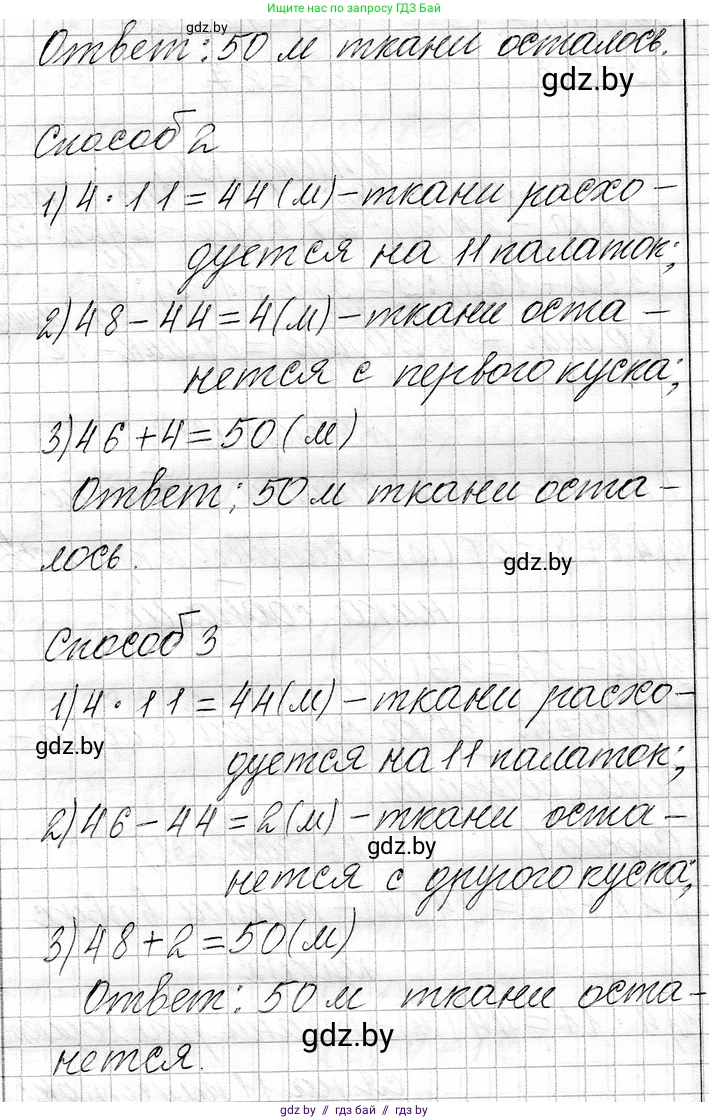 Ищите нас по запросу ГДЗ Бай
gdz.by
Ответ: 50 м ткани осталось.
gdz.by
Способ 2
1) 4 · 11 = 44 (м) – ткани расхо-
дуется на 11 палаток;
2) 48 – 44 = 4 (м) – ткани оста-
нется с первого куска;
3) 46 + 4 = 50 (м)
Ответ: 50 м ткани оста-
лось.
gdz.by
Способ 3
1) 4 · 11 = 44 (м) – ткани расхо-
gdz.by
дуется на 11 палаток;
2) 46 – 44 = 2 (м) – ткани оста-
gdz.by
нется с другого куска;
3) 48 + 2 = 50 (м)
Ответ: 50 м ткани оста-
gdz.by
нется.
gdz by // гдз бай // gdz by